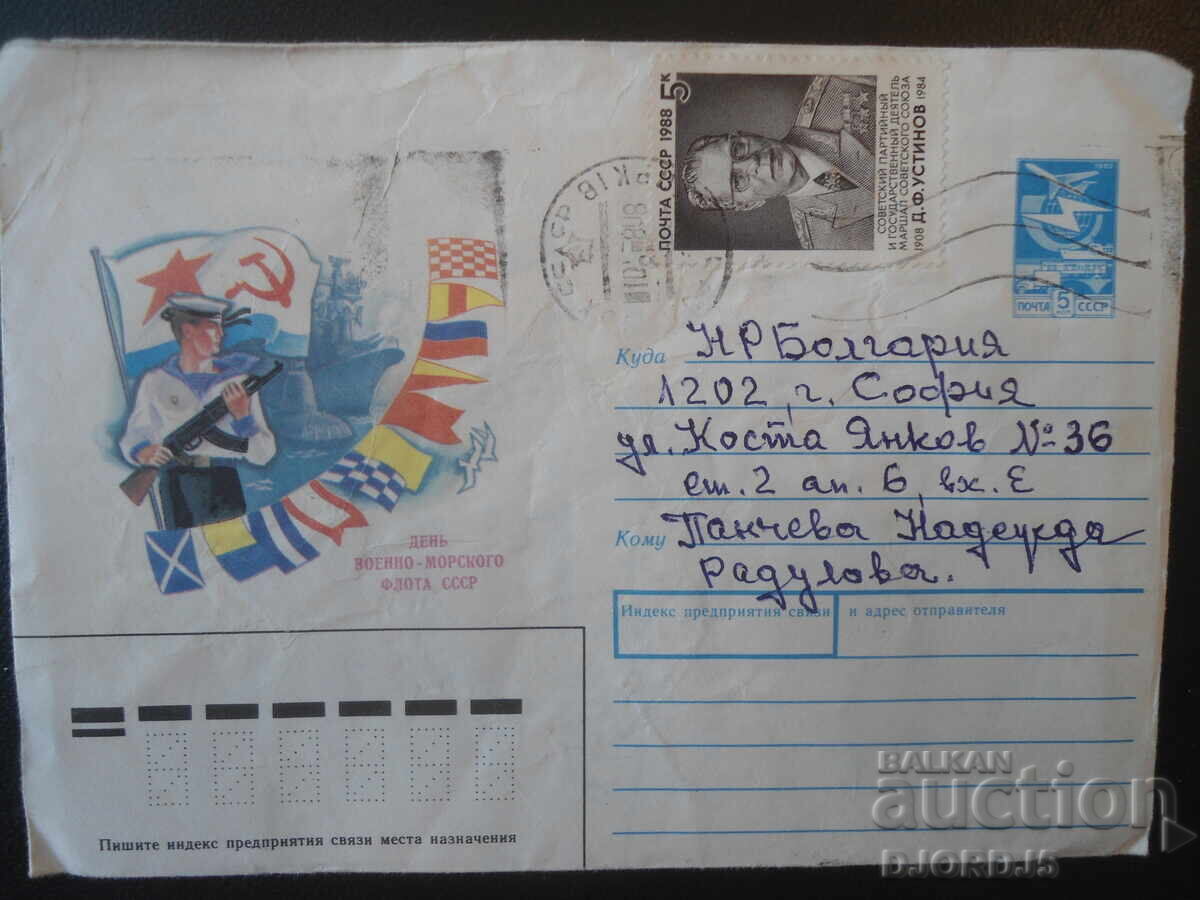 ПОЧТА СССР 1988 5К
СОВЕТСКИЙ ПАРТИЙНЫЙ
И ГОСУДАРСТВЕННЫЙ ДЕЯТЕЛЬ
МАРШАЛ СОВЕТСКОГО СОЮЗА
1908 Д.Ф.УСТИНОВ 1984
1982
ПОЧТА 5 СССР
ДЕНЬ
ВОЕННО-МОРСКОГО
ФЛОТА СССР
Куда НРБолгария
1202, г. София
ул. Коста Янков №36
ет.2 ап. 6, вх. Е
Кому Панчева Надежда
Радулова.
Индекс предприятия связи и адрес отправителя
Пишите индекс предприятия связи места назначения
BALKAN
auction
DJORDJ5